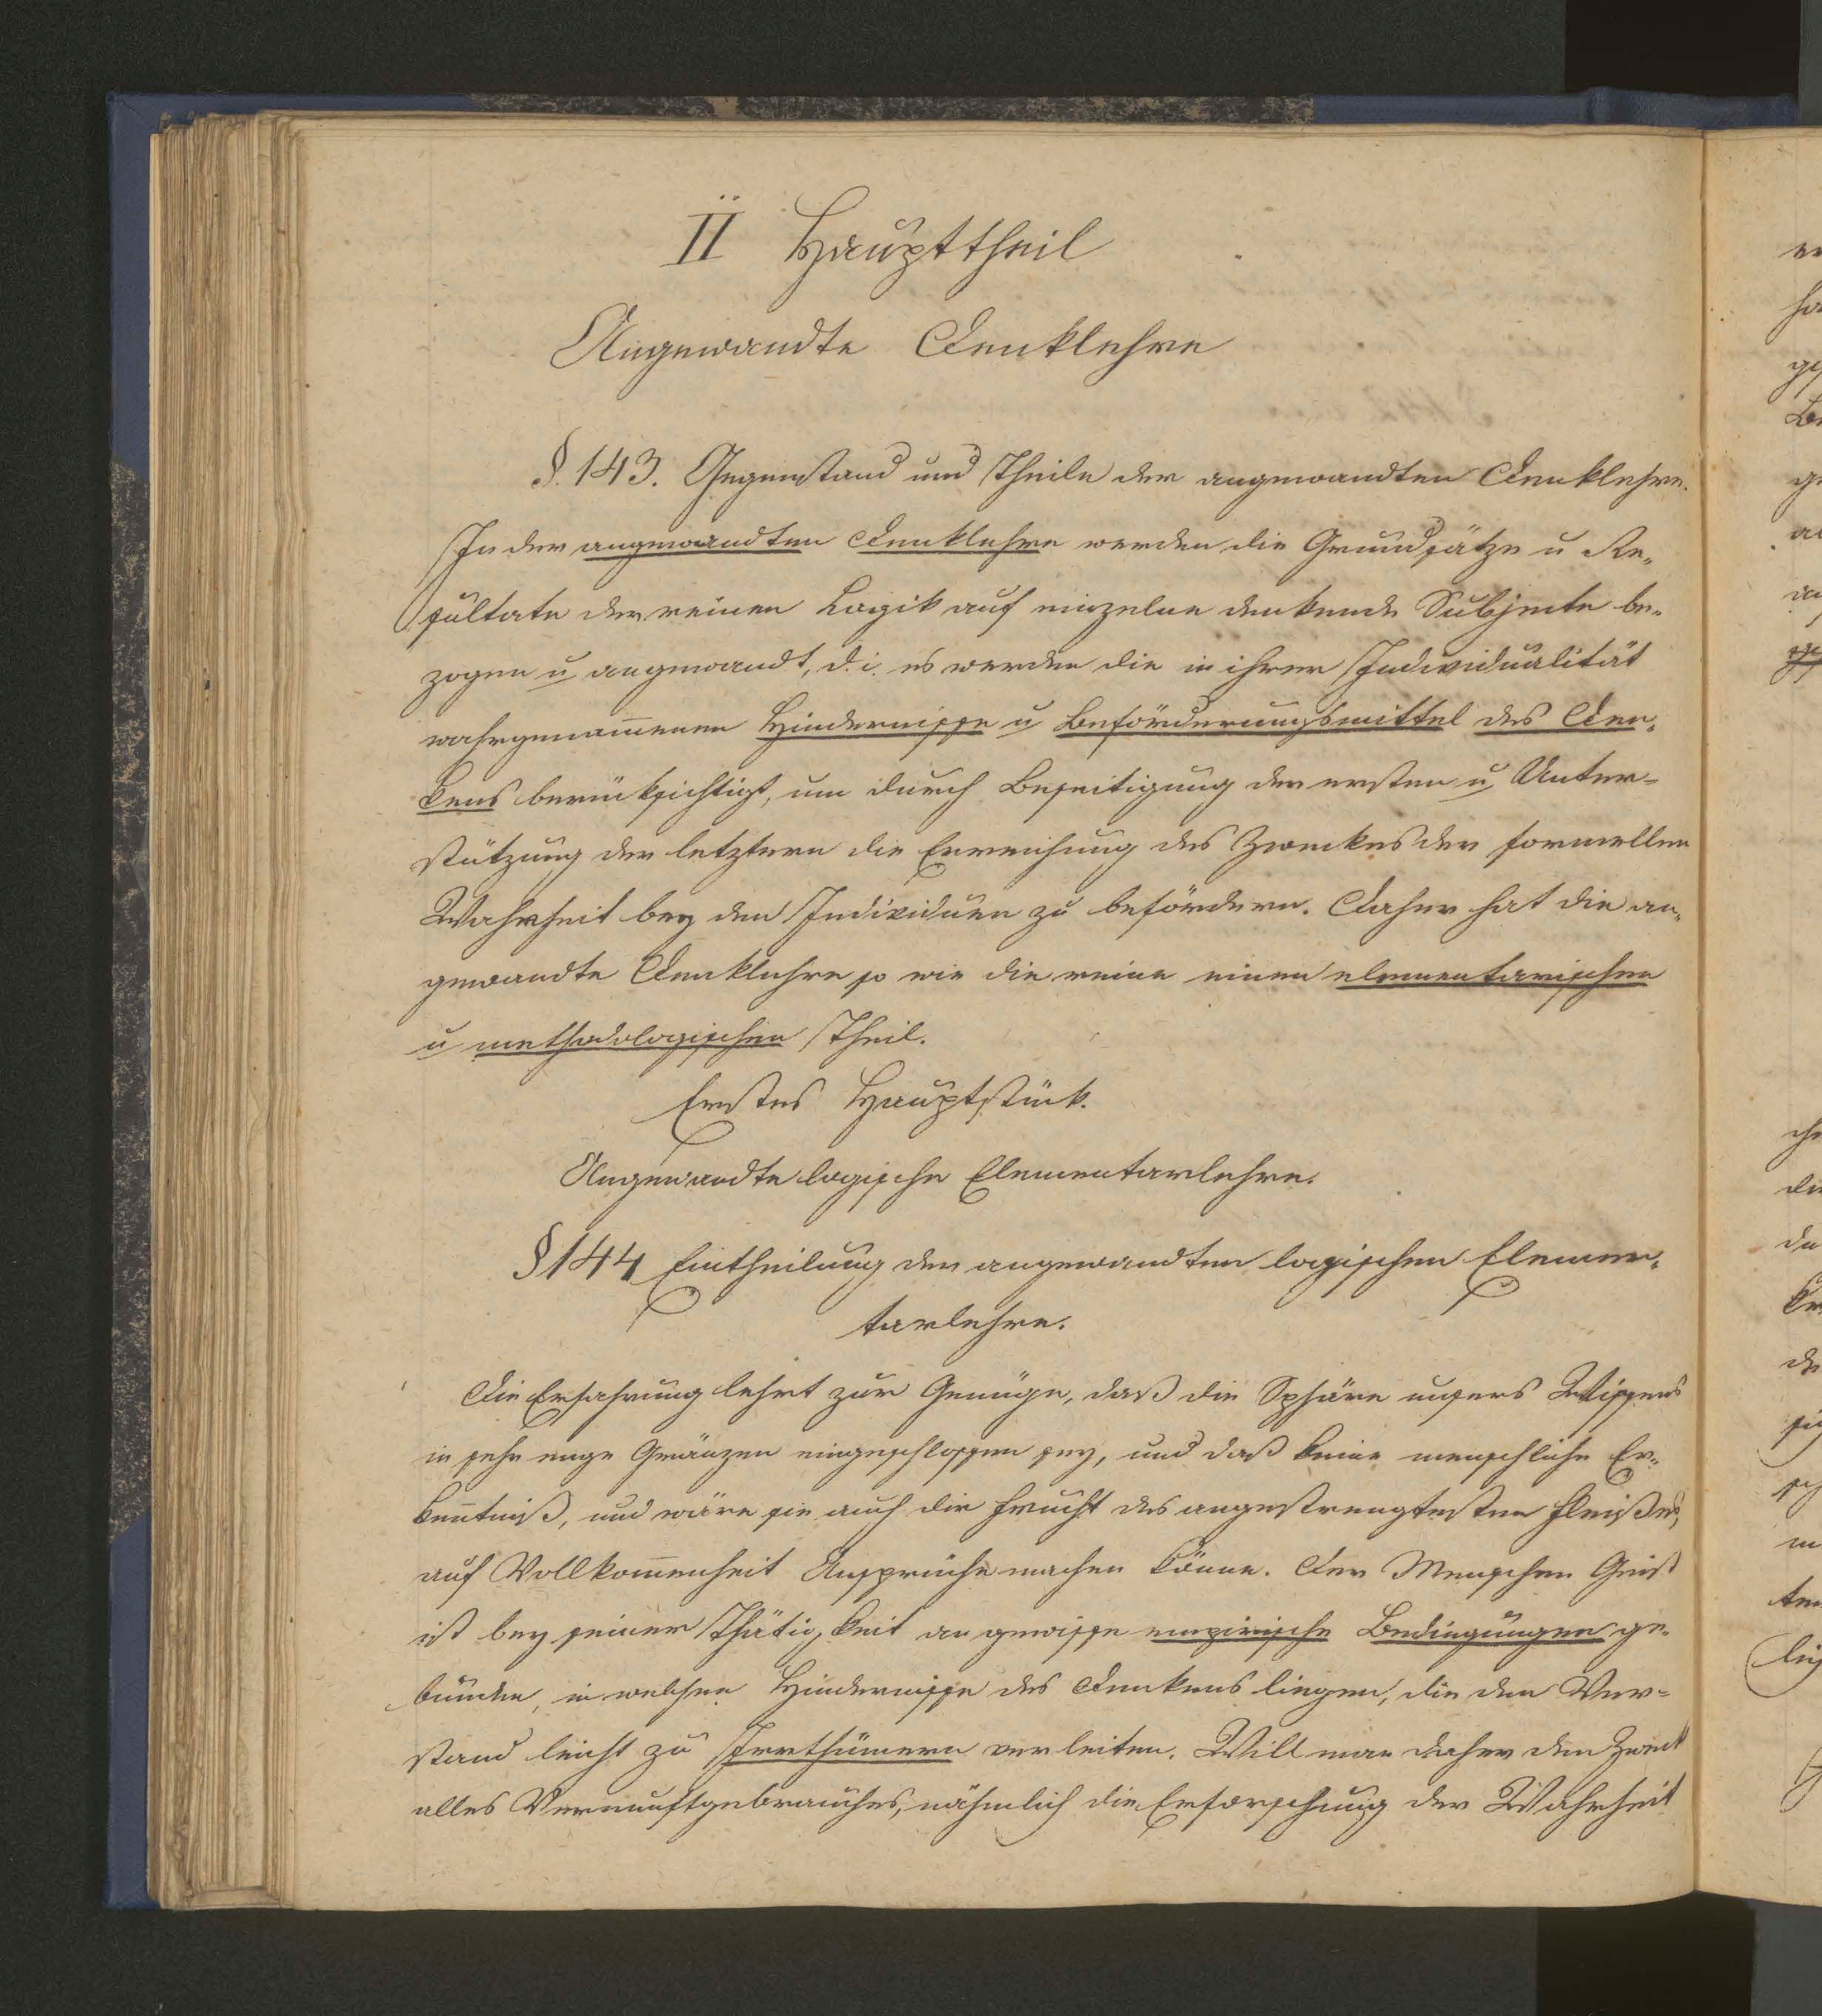 II Haupttheil
Angewandte Denklehre
§. 143. Gegenstand und Theile der angewandten Denklehre.
In der angewandten Denklehre werden die Grundsätze u Re„
sultate der reinen Logik auf einzelne denkende Subjecte be„
zogen u angewandt, d. i. es werden die in ihrer Individualität
wahrgenom̄enen Hindernisse u Beförderungsmittel des Den„
kens berücksichtigt, um durch Beseitigung der ersten u Unter=
stützung der letztern die Erreichung des Zweckes der formellen
Wahrheit bey den Individuen zu befördern. Daher hat die an„
gewandte Denklehre so wie die reine einen elementarischen
u methodologischen Theil.
Erstes Hauptstück.
Angewandte logische Elementarlehre.
§ 144 Eintheilung der angewandten logischen Elemen„
tarlehre.
Die Erfahrung lehrt zur Genüge, daß die Sphäre unsers Wissens
in sehr enge Gränzen eingeschlossen sey, und daß keine menschliche Er„
ken̄tniß, und wäre sie auch die Frucht des angestrengtesten Fleißes,
auf Vollkom̄enheit Ansprüche machen könne. Der Menschen Geist
ist bey seiner Thätigkeit an gewisse empirische Bedingungen ge„
bunden, in welchen Hindernisse des Denkens liegen, die den Ver=
stand leicht zu Irrthümern verleiten. Will man daher den Zweck
alles Vernunftgebrauches, nähmlich die Erforschung der Wahrheit